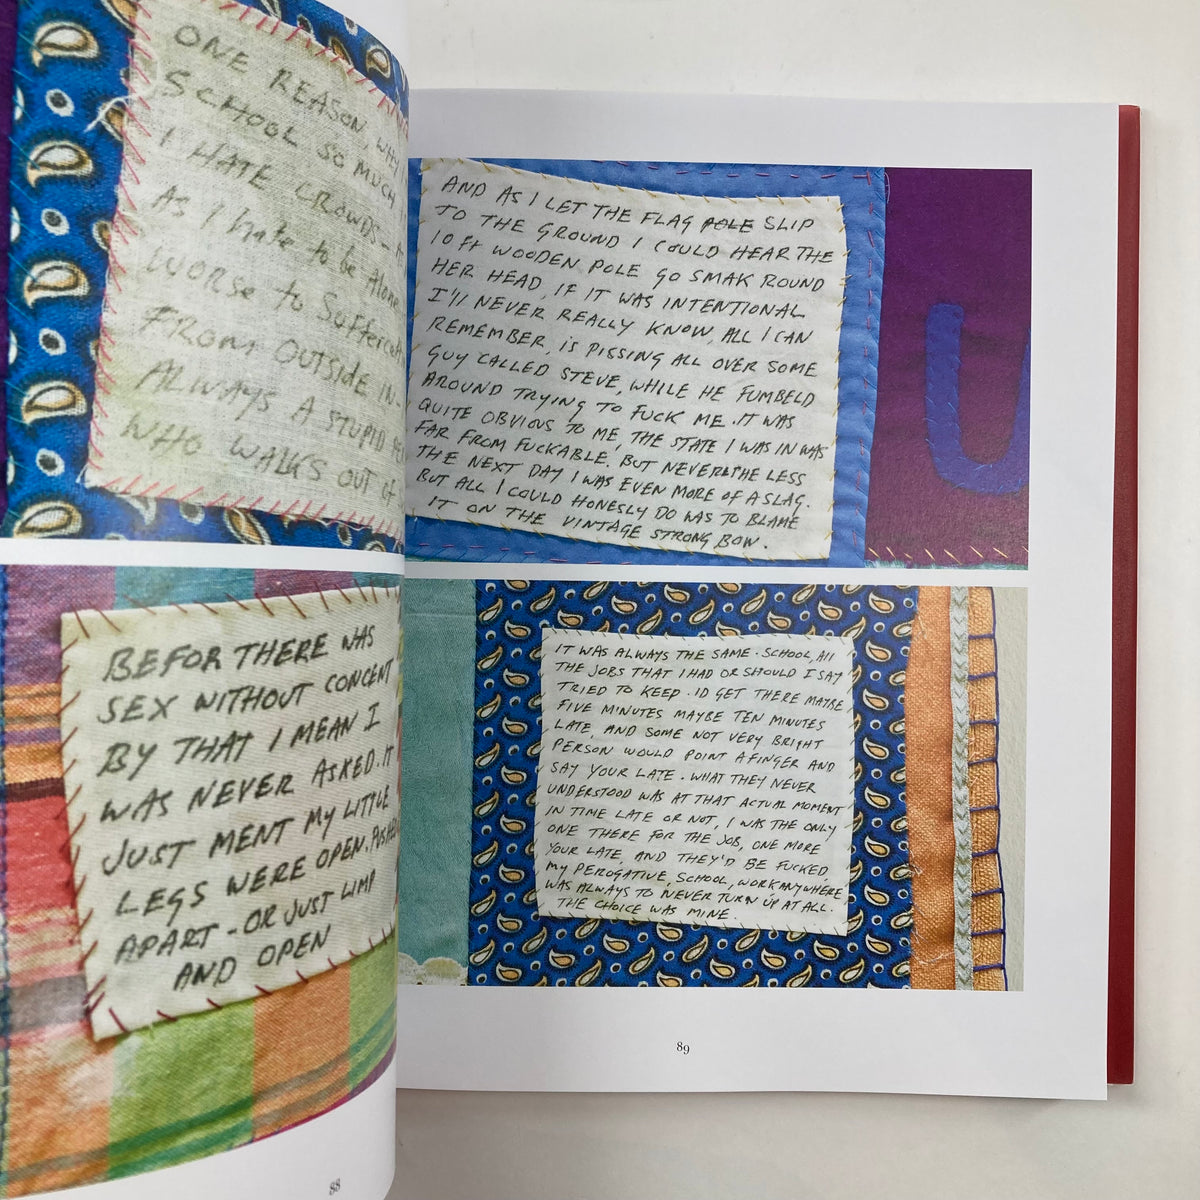 ONE REASON, WHY I
SCHOOL SO MUCH
I HATE CROWDS -
AS I hate to be Alone
WORSE to
FROM OUTSIDE IN -
ALWAYS A STUPID
WHO WALKS OUT OF
BEFOR THERE WAS
SEX WITHOUT CONCENT
BY THAT I MEAN I
WAS NEVER ASKED. IT
JUST MENT MY LITTLE
LEGS WERE OPEN. PUSHED
APART - OR JUST LIMP
AND OPEN
88
AND AS I LET THE FLAG POLE SLIP
TO THE GROUND I COULD HEAR THE
10 Ft WOODEN POLE GO SMAK ROUND
HER HEAD, IF IT WAS INTENTIONAL
I'll NEVER REALLY KNOW, ALL I CAN
REMEMBER, is PISSING ALL OVER SOME
GUY CALLED STEVE, WHILE HE FUMBELD
AROUND TRYING TO FUCK ME. IT WAS
QUITE OBVIOUS TO ME, THE STATE I WAS IN WAS
FAR FROM FUCKABLE. BUT NEVERTHE LESS
THE NEXT DAY I WAS EVEN MORE OF A SLAG.
BUT ALL I COULD HONESLY DO WAS TO BLAME
IT ON THE VINTAGE STRONG BOW.
U
IT WAS ALWAYS THE SAME. SCHOOL, All
THE JOBS THAT I HAD OR SHOULD I SAY
TRIED TO KEEP. ID GET THERE MAYBE
FIVE MINUTES MAYBE TEN MINUTES
LATE, AND SOME NOT VERY BRIGHT
PERSON WOULD POINT A FINGER AND
SAY YOUR LATE. WHAT THEY NEVER
UNDERSTOOD WAS AT THAT ACTUAL MOMENT
IN TIME LATE OR NOT, I WAS THE ONLY
ONE THERE FOR THE JOB, ONE MORE
YOUR LATE, AND THEY'D BE FUCKED.
MY PEROGATIVE, SCHOOL, WORK ANYWHERE,
WAS ALWAYS TO NEVER TURN UP AT ALL.
THE CHOICE WAS MINE.
89